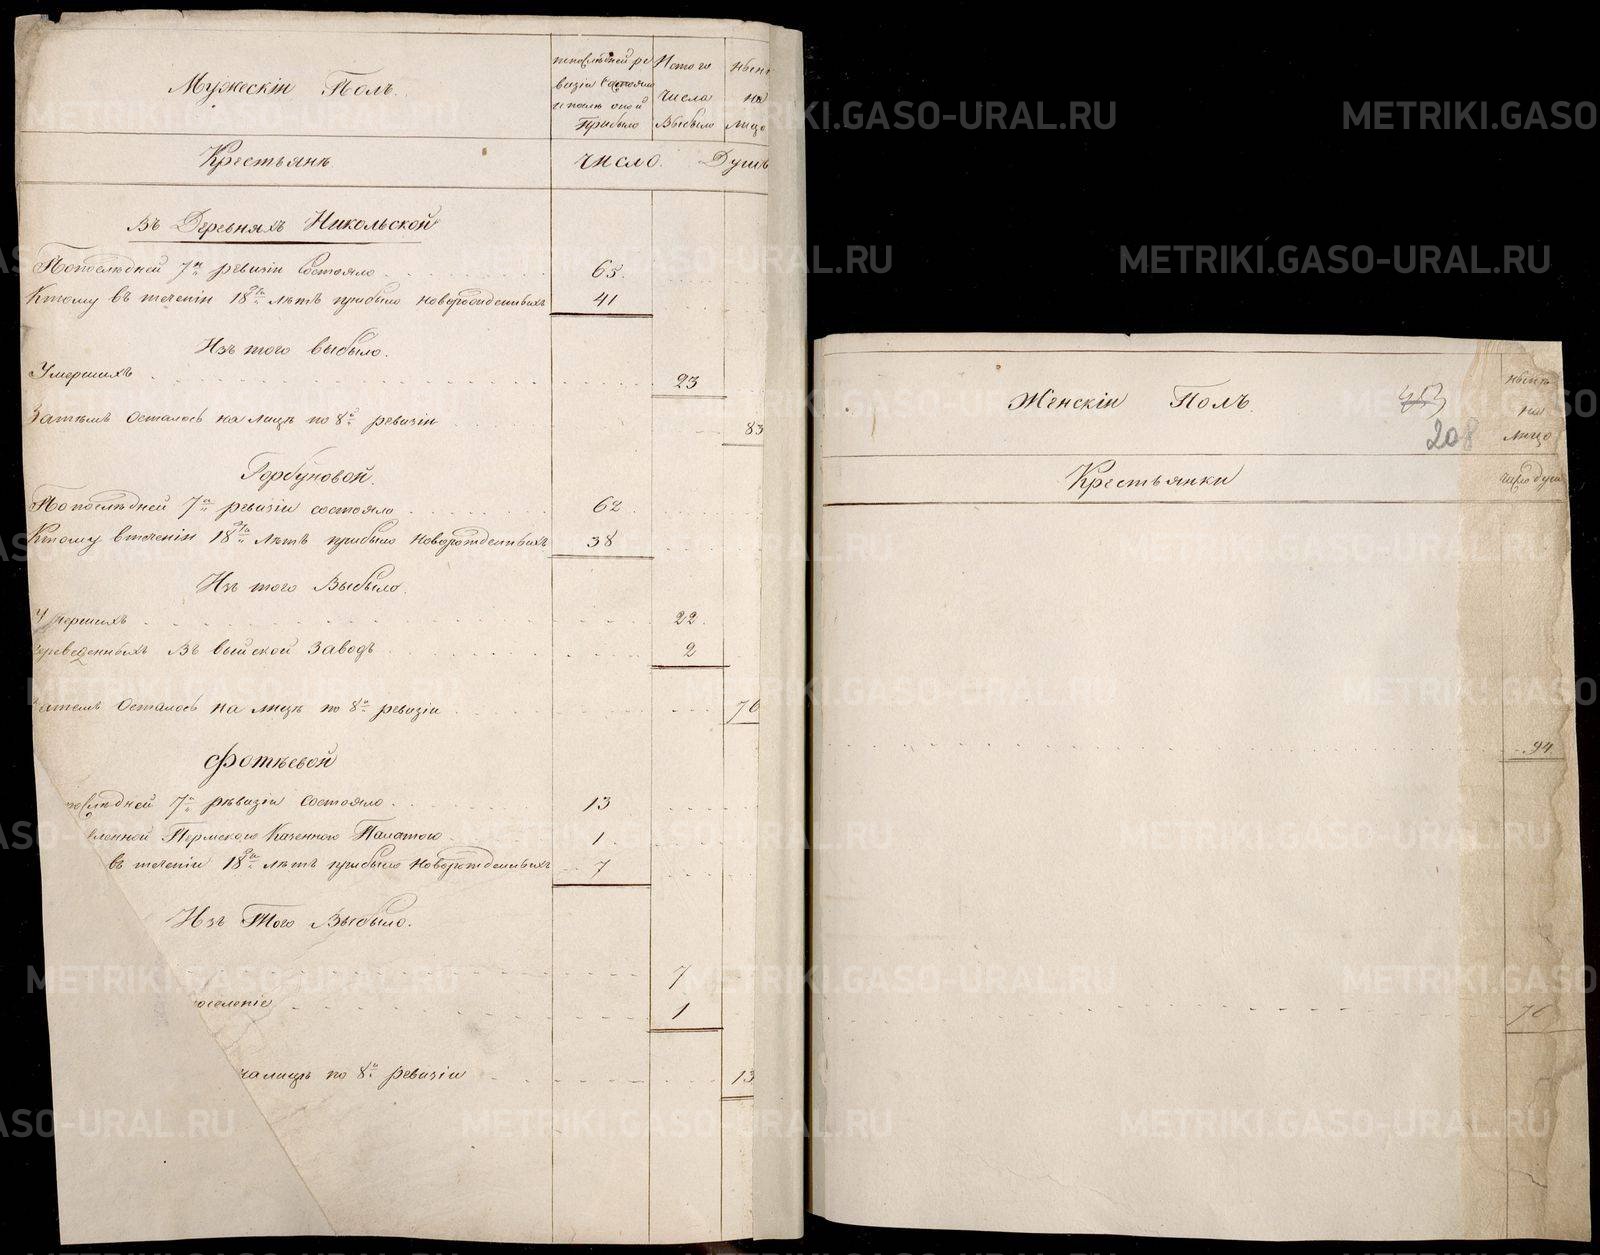 Мужескiи Полъ.
попослѣдней ре
визiи состояло
и после оной
Прибыло
Истого
числа
Выбыло
ныне
на
лицо
Крестьянъ.
число.
Душъ
Въ Деревняхъ Никольской
Попослѣдней 7й ревизiи состояло 65.
Ктому въ теченiи 18ти лѣтъ прибыло новорожденныхъ 41
Изъ того выбыло.
Умершихъ 23
Затѣмъ осталось на лицѣ по 8й ревизiи 83
Горбуновой.
Попослѣдней 7й ревизiи состояло 62
Ктому втеченiи 18ти лѣтъ прибыло новорожденныхъ 38
Изъ того Выбыло.
Умершихъ 22.
ереведенныхъ Въ выйской Заводъ 2
атемъ осталось на лицѣ по 8й ревизiи 76
Фотѣевой
послѣдней 7й рѣвизiи состояло 13
вленной Пермскою Казенною Палатою 1.
въ теченiи 18ти лѣтъ прибыло новорожденныхъ 7
Изъ Того Выбыло.
7
оселенiе 1
налицѣ по 8й ревизiи 13
Женскiи Полъ.
208
ныне
на
лицо
Крестьянки
число душ
94
76
METRIKI.GASO-URAL.RU